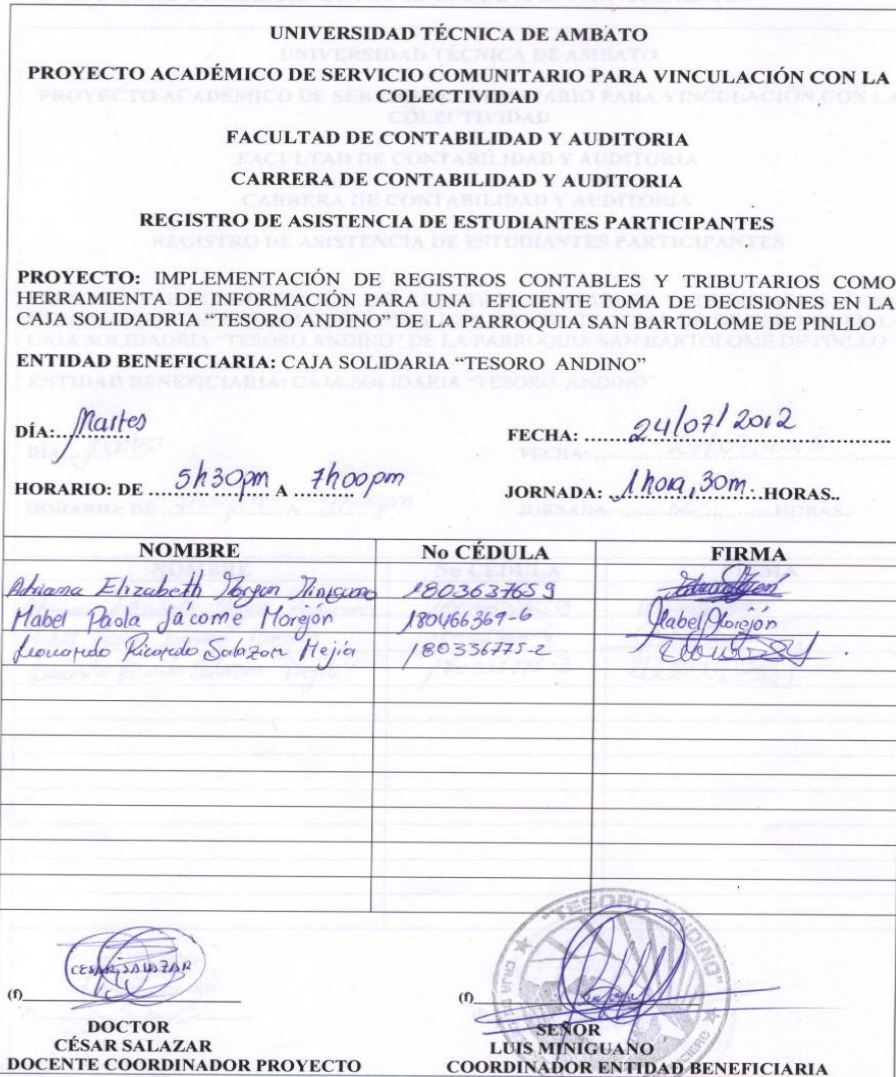 UNIVERSIDAD TÉCNICA DE AMBATO
PROYECTO ACADÉMICO DE SERVICIO COMUNITARIO PARA VINCULACIÓN CON LA
COLECTIVIDAD
FACULTAD DE CONTABILIDAD Y AUDITORIA
CARRERA DE CONTABILIDAD Y AUDITORIA
REGISTRO DE ASISTENCIA DE ESTUDIANTES PARTICIPANTES
PROYECTO: IMPLEMENTACIÓN DE REGISTROS CONTABLES Y TRIBUTARIOS COMO
HERRAMIENTA DE INFORMACIÓN PARA UNA EFICIENTE TOMA DE DECISIONES EN LA
CAJA SOLIDADRIA "TESORO ANDINO" DE LA PARROQUIA SAN BARTOLOME DE PINLLO
ENTIDAD BENEFICIARIA: CAJA SOLIDARIA "TESORO ANDINO"
DÍA: Martes FECHA: 24/07/2012
HORARIO: DE 5h30pm A 7h00pm JORNADA: 1hora,30m. HORAS..
NOMBRE No CÉDULA FIRMA
Adriana Elizabeth 180363765 9
Mabel Paola Jácome Morejón 180466369-6 Mabel Morejón
Leonardo Ricardo Salazar Mejía 180336775-2
"TESORO ANDINO"
CESAR SALAZAR
(f) (f)
DOCTOR SEÑOR
CÉSAR SALAZAR LUIS MINIGUANO
DOCENTE COORDINADOR PROYECTO COORDINADOR ENTIDAD BENEFICIARIA